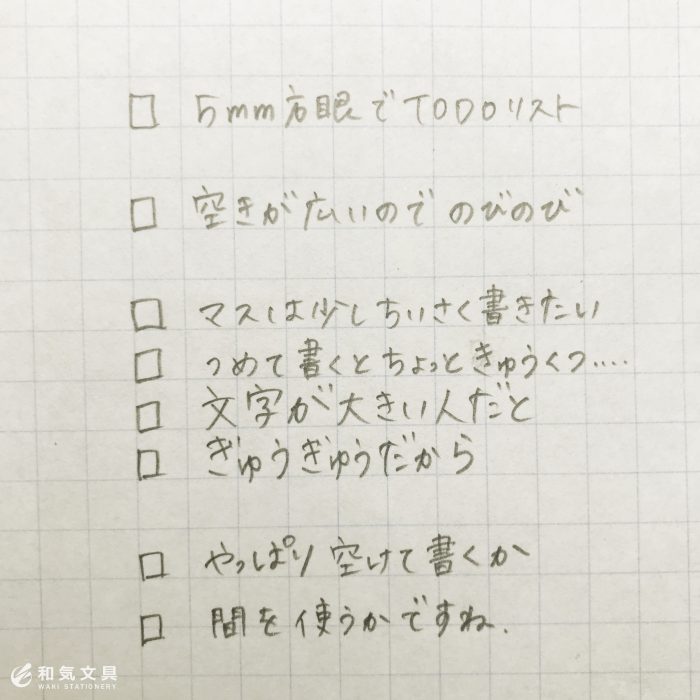 □ 5mm方眼でTODOリスト
□ 空きが広いので のびのび
□ マスは少しちいさく書きたい
□ つめて書くとちょっときゅうくつ‥‥
□ 文字が大きい人だと
□ ぎゅうぎゅうだから
□ やっぱり空けて書くか
□ 間を使うかですね.
和気文具
WAKI STATIONERY